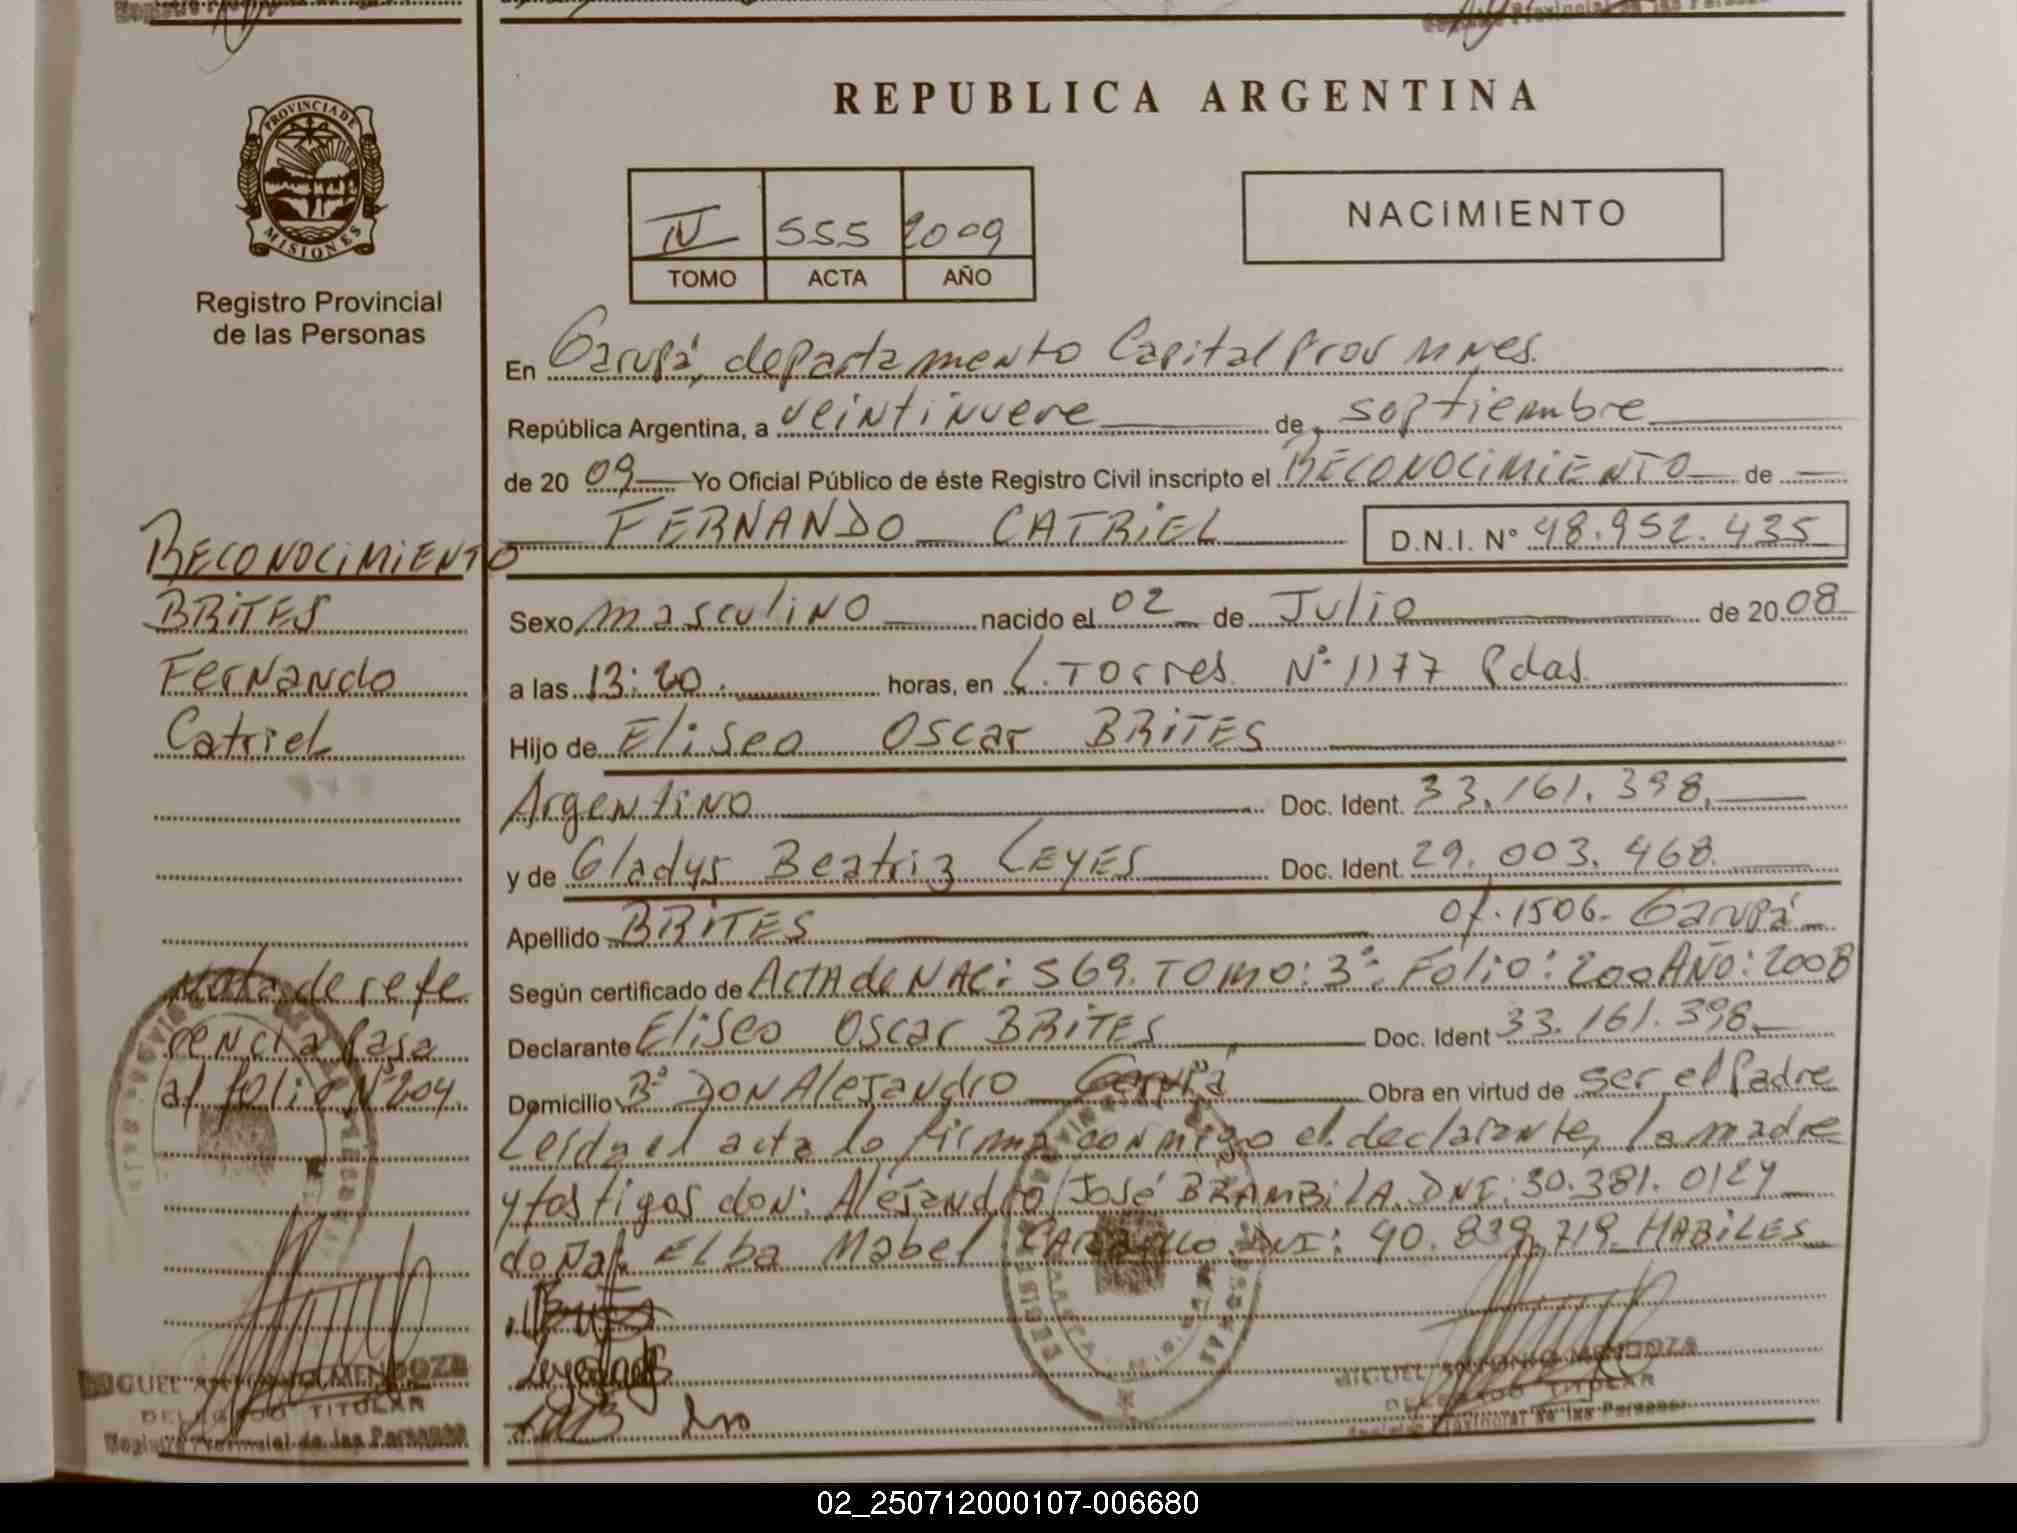 REPUBLICA ARGENTINA
PROVINCIA DE MISIONES
Registro Provincial
de las Personas
IV 555 2009
TOMO ACTA AÑO
NACIMIENTO
En Garupá, departamento Capital Prov Mnes.
República Argentina, a veintinueve de septiembre
de 20 09 Yo Oficial Público de éste Registro Civil inscripto el RECONOCIMIENTO de
FERNANDO CATRIEL D.N.I. N° 48.952.435
Sexo masculino nacido el 02 de Julio de 20 08
a las 13:20. horas, en L. Torres N° 1177 Pdas.
Hijo de Eliseo Oscar BRITES
Argentino Doc. Ident. 33.161.398.
y de Gladys Beatriz LEYES Doc. Ident. 29.003.468.
Apellido BRITES of. 1506. Garupá
Según certificado de Acta de Naci: 569. Tomo: 3° Folio: 200 AÑO: 2008
Declarante Eliseo Oscar BRITES Doc. Ident 33.161.398.
Domicilio B° Don Alejandro Garupá Obra en virtud de ser el Padre
Leída el acta la firma conmigo el declarante, la madre
y testigos don: Alejandro José BRAMBILA. DNI: 30.381.012 y
doña: Elba Mabel DNI: 40.839.719. HABILES
RECONOCIMIENTO
BRITES
Fernando
Catriel
Nota de refe
rencia Pasa
al folio N° 204.
MIGUEL ANTONIO MENDOZA
DELEGADO TITULAR
Registro Provincial de las Personas
MIGUEL ANTONIO MENDOZA
DELEGADO TITULAR
Registro Provincial de las Personas
02_250712000107-006680